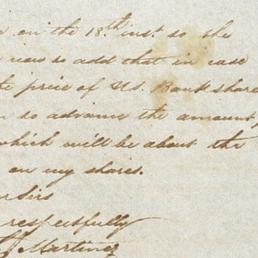 on the 18th inst. so she
now so add that in case
the price of US. Bank share
so advance the amount
which will be about the
on my shares.
respectfully
Martinez